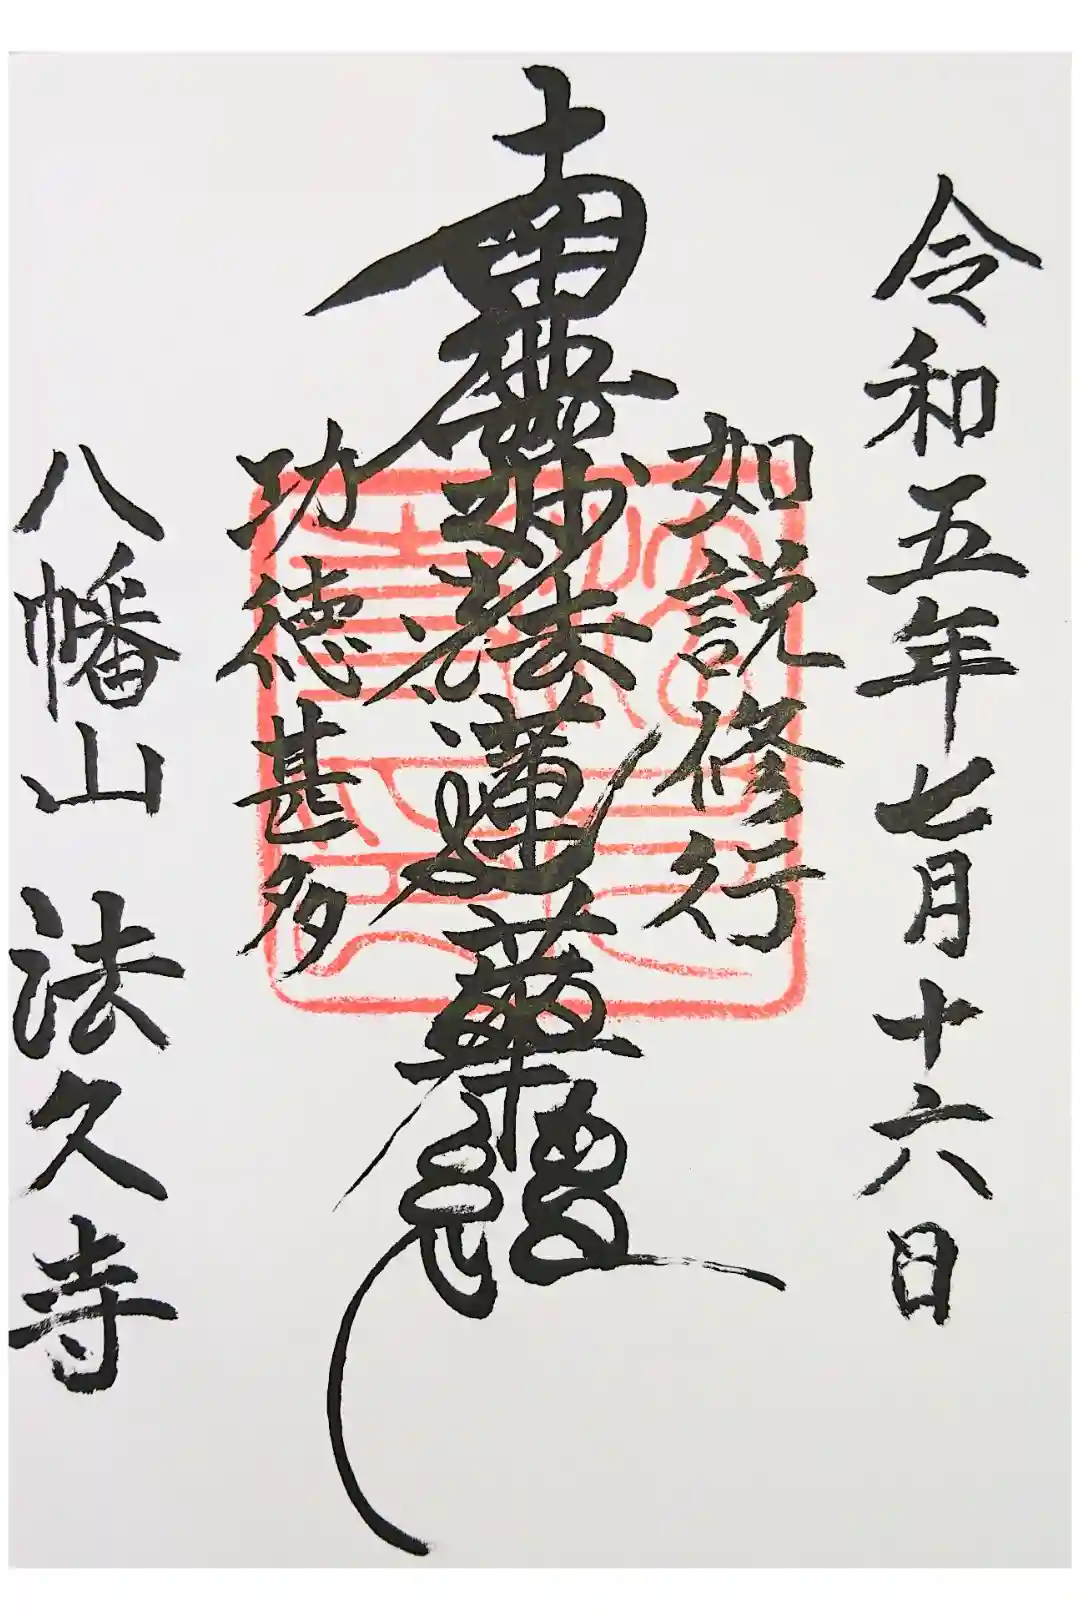 令和五年七月十六日
如説修行
南無妙法蓮華經
功徳甚多
八幡山 法久寺